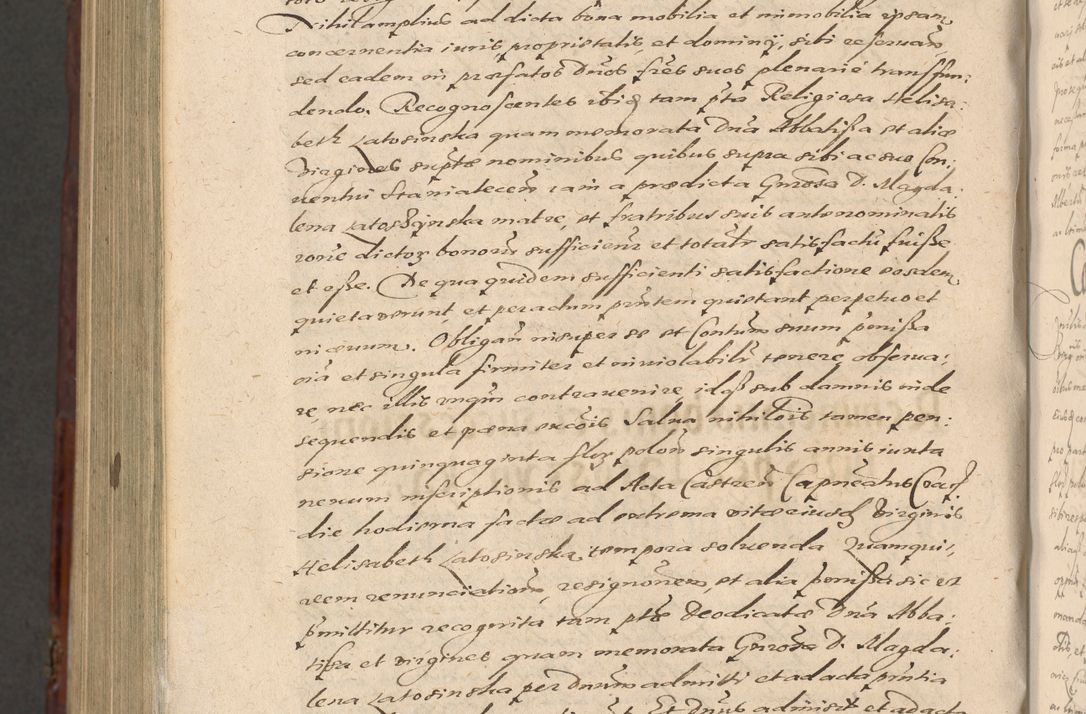 Nihil amplius ad dicta bona mobilia et immobilia ipsam
concernentia iuris, proprietatis, et dominij, sibi reseruań
sed eadem in præfatos Dnos fres suos plenarie transfun:
dendo. Recognoscentes ibiđ tam pta Religiosa Helisa:
beth Latosinska quam memorata Dna Abbatissa et aliæ
Virgines suptæ nominibus quibus supra sibi ac suo Con:
uentui Staniatecen iam a prædicta Gnrosa D. Magda:
lena Latoszynska matre, et fratribus suis antenominatis
rone dictor bonorū sufficienr et totalr satisfactū fuisse
et esse. De qua quidem sufficienti satisfactione eosdem
quietauerunt et peractum pntem quietant perpetuo et
in æuum. Obligań insuper se et Contum suum pmissa
oia et singula firmiter et inuiolabilr tenere, obserua:
re nec illis unqm contrauenire idqȝ sub damnis inde
sequendis et pæna succois Salua nihilois tamen pen:
sione quinquaginta flor polon singulis annis iuxta
nexum inscriptionis ad Acta Castren Capnealia Crac
die hodierna factæ ad extrema vitæ eiusđ Virginis
Helisabeth Latosinska tempora soluenda Quamqui:
dem renunciationē, resignonem, et alia pmissa sic ut
pmittitur recognita tam ptæ Deodicatæ Dna Abba:
tissa et virgines quam memorata Gnrosa D. Magda:
lena Latosinska per Dnum admitti et ad acta pntia